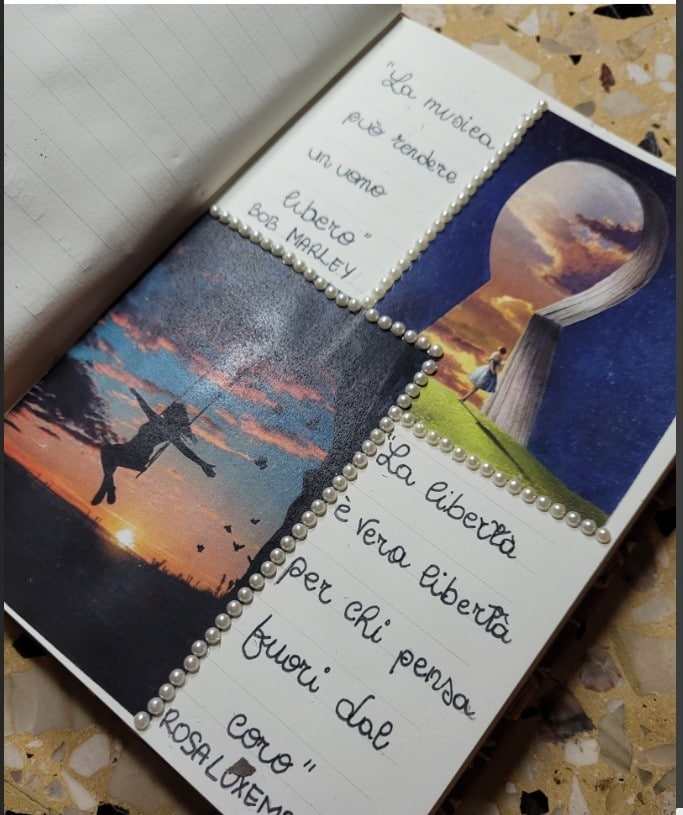 "La musica
può rendere
un uomo
libero"
BOB MARLEY
"La libertà
è vera libertà
per chi pensa
fuori dal
coro"
ROSA LUXEM